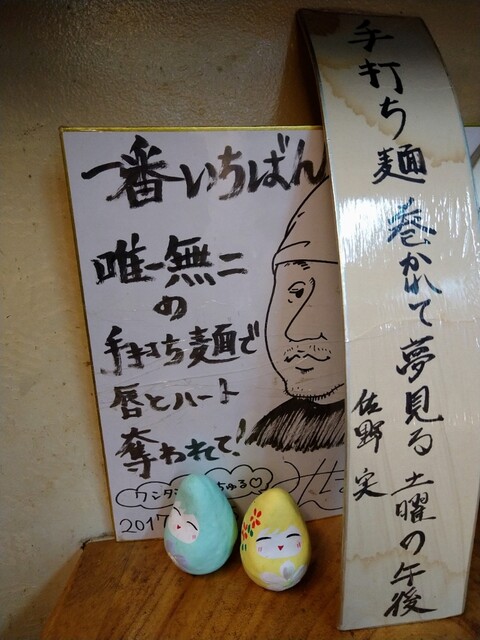 一番いちばん
唯一無二
の
手打ち麺で
唇とハート
奪われて!
ワンタン
ちゅる♡
2017
手打ち麺 巻かれて夢見る 土曜の午後
佐野 実